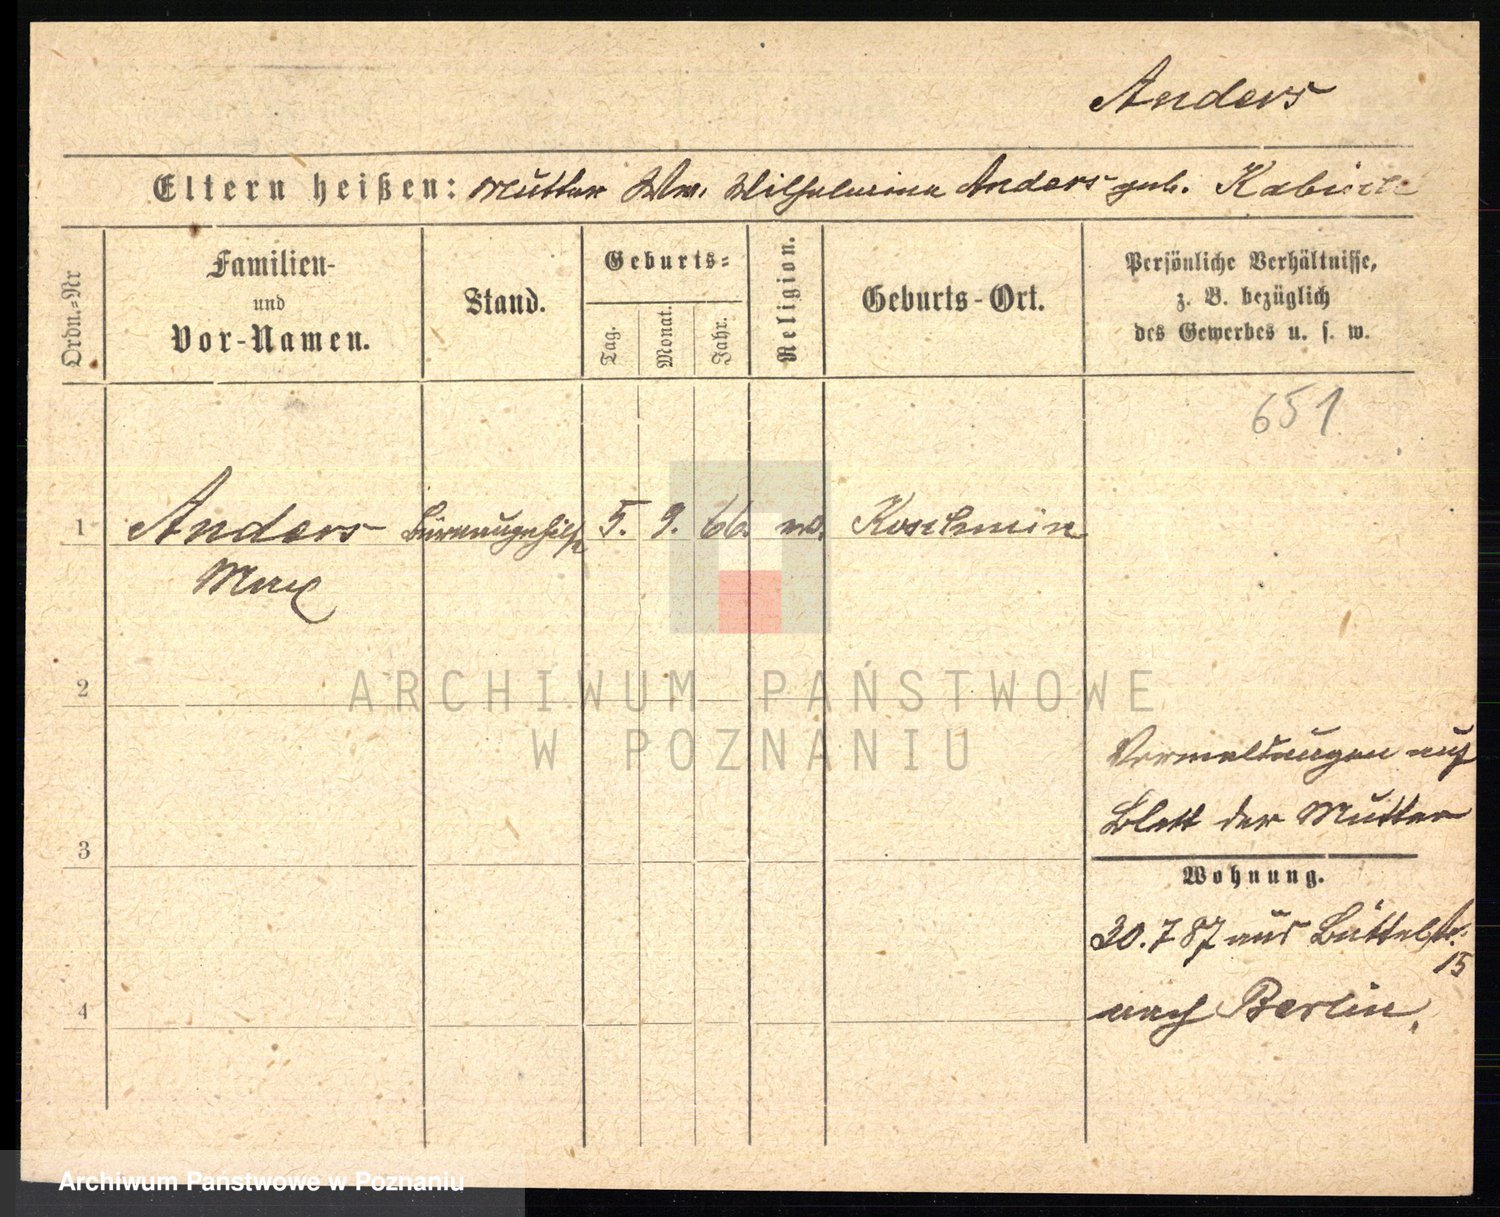 Anders
Eltern heißen: Mutter Ww. Wilhelmine Anders geb.
Ordn.-Nr
Familien-
und
Vor-Namen.
Stand.
Geburts-
Tag.
Monat.
Jahr.
Religion.
Geburts-Ort.
Persönliche Verhältnisse,
z. B. bezüglich
des Gewerbes u. s. w.
651
1 Anders Büreaugehilfe 5. 9. 66. Koschmin
Max
2
ARCHIWUM PAŃSTWOWE
W POZNANIU
Vormeldungen auf
Blatt der Mutter
3
Wohnung.
30.7 87 aus Büttelstr.
15
nach Berlin.
4
Archiwum Państwowe w Poznaniu